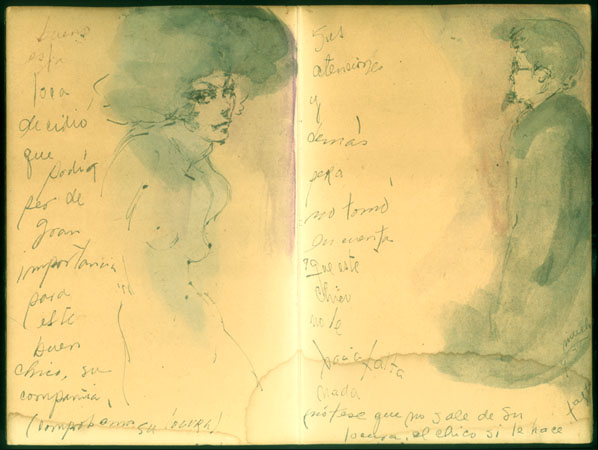 bueno
esta
loca
decidio
que
podia
ser de
gran
importancia
para
este
buen
chico, su
compañia,
su locura)
Sus
atenciones
y
demás
pero
no tomó
en cuenta
que este
chico
no le
hacia falta
nada
nótese que no sale de su
locura, el chico si le hace